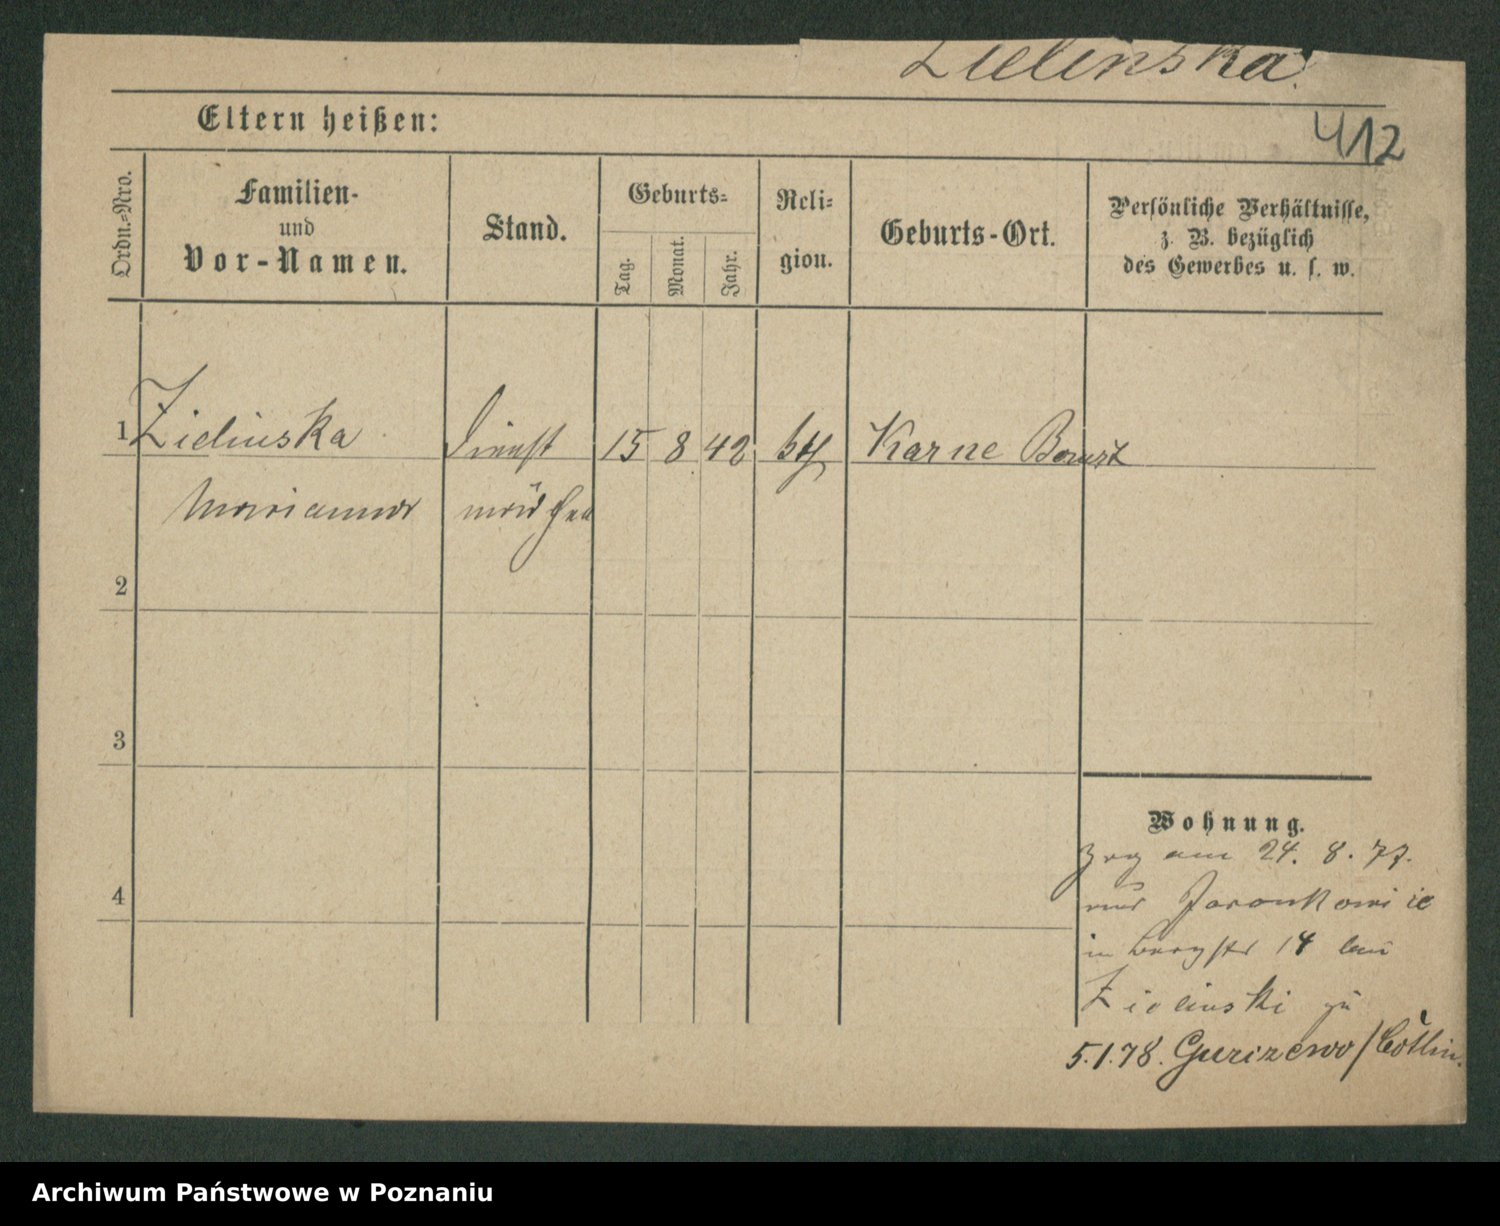 Zielinska.
412
Eltern heißen:
Ordn.-Nro.
Familien-
und
Vor-Namen.
Stand.
Geburts-
Tag.
Monat.
Jahr.
Reli-
gion.
Geburts-Ort.
Persönliche Verhältnisse,
z. B. bezüglich
des Gewerbes u. s. w.
1 Zielinska Dienst 15 8 42 kth Karne Bomst
Marianna mädchen
2
3
4
Wohnung.
am 24. 8. 77.
aus
in 14 bei
Zielinski zu
5.1.78.
Archiwum Państwowe w Poznaniu